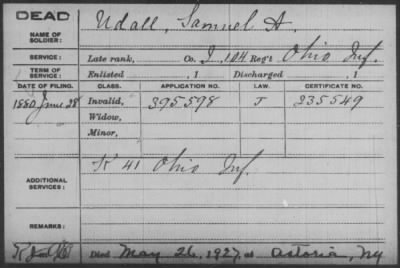 DEAD
NAME OF SOLDIER: Udall, Samuel A.
SERVICE: Late rank, Co. I, 104 Reg't Ohio Inf.
TERM OF SERVICE: Enlisted , 1 Discharged , 1
DATE OF FILING. CLASS. APPLICATION NO. LAW. CERTIFICATE NO.
1880 June 28 Invalid, 395598 J 235549
Widow,
Minor,
ADDITIONAL SERVICES: K 41 Ohio Inf.
REMARKS:
Died May 26, 1927, at Astoria, Ny